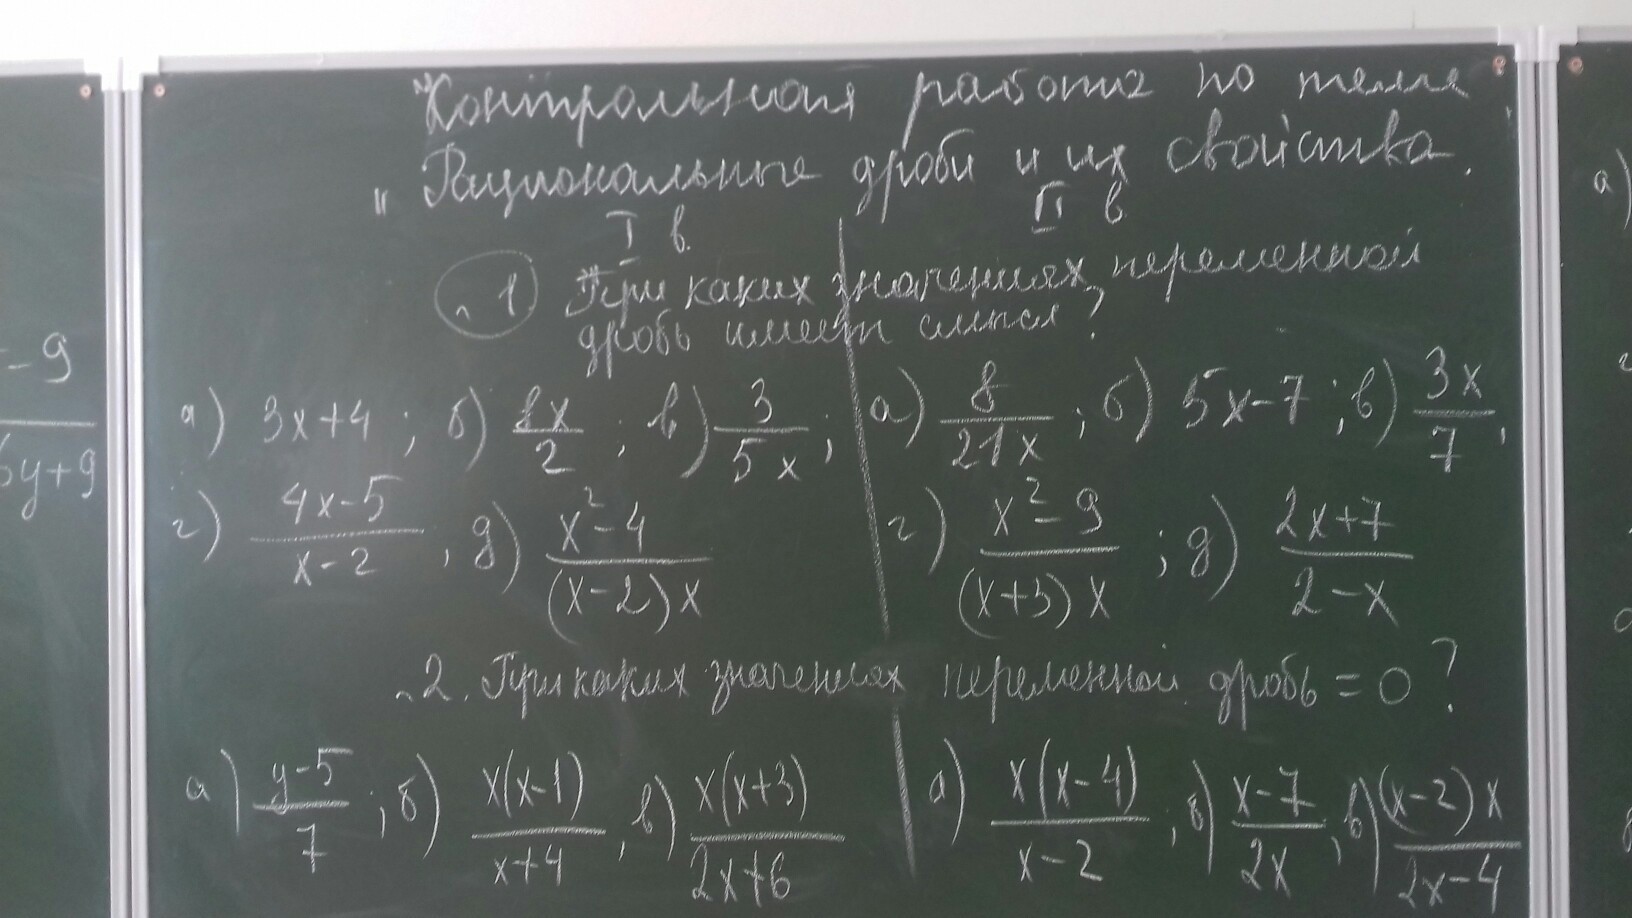 "Контрольная работа по теме
"Рациональные дроби и их свойства.
I в. II в
.1) При каких значениях переменной
дробь имеет смысл?
а) 3x+4; б) 8x/2; в) 3/5x; а) 8/21x; б) 5x-7; в) 3x/7,
г) 4x-5/x-2, д) x²-4/(x-2)x г) x²-9/(x+3)x; д) 2x+7/2-x
.2. При каких значениях переменной дробь = 0?
а) y-5/7; б) x(x-1)/x+4, в) x(x+3)/2x+6 а) x(x-4)/x-2; б) x-7/2x, в) (x-2)x/2x-4
-9
6y+9
а)